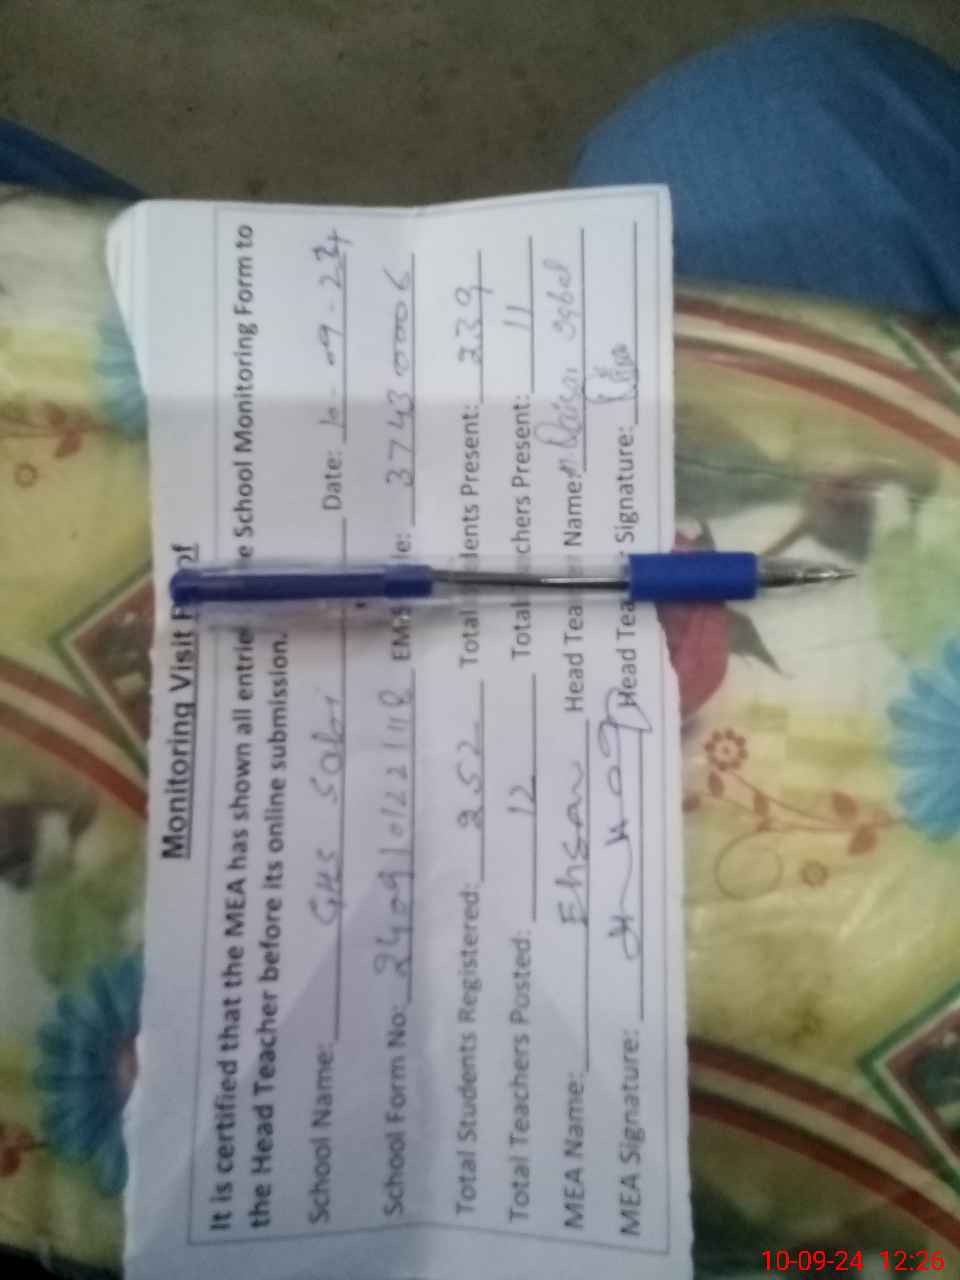 Monitoring Visit P of
It is certified that the MEA has shown all entrie e School Monitoring Form to
the Head Teacher before its online submission.
School Name: GHS Date: 10-09-24
School Form No: EMIS e: 37430006
Total Students Registered: 252 Total dents Present: 239
Total Teachers Posted: 12 Total chers Present: 11
MEA Name: Ehsan Head Tea Name:
MEA Signature: Head Tea Signature:
10-09-24 12:26